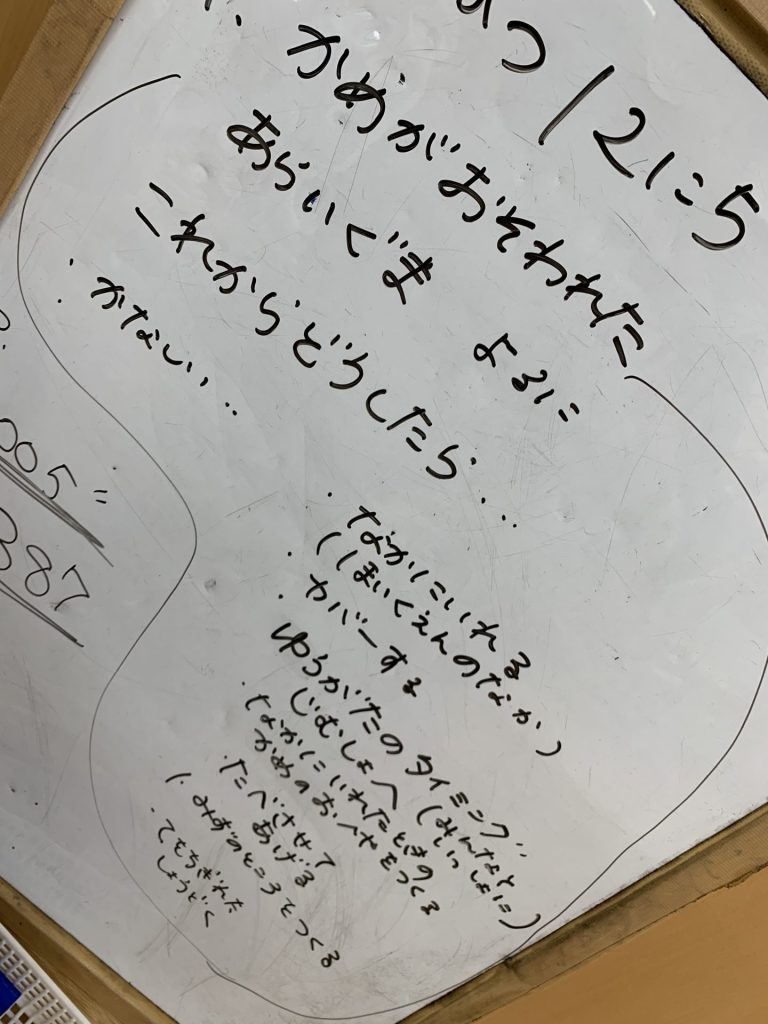 つ12にち
かめがおそわれた
あらいぐま よるに
これからどうしたら...
・かなしい...
・なかにいれる
(ほいくえんのなか)
・カバーする
・ゆうがたのタイミング
じむしょへ(みんなと
いっしょに)
・(なかにいれたときの
かめのおへやをつくる
・たべさせて
あげる
・みずのところをつくる
・てをちぎれた
しょうどく
005=
387